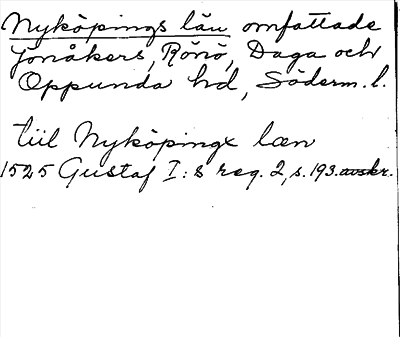 Nyköpings län omfattade
Jonåkers, Rönö, Daga och
Oppunda hd, Söderm. l.
tiil Nyköpingx læn
1525 Gustaf I:s reg. 2, s. 193. avskr.